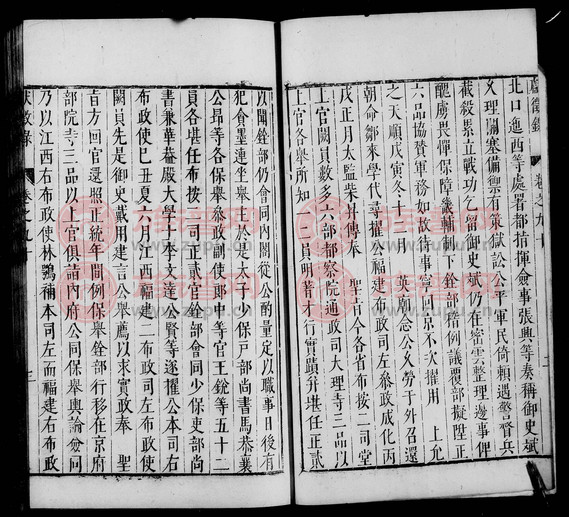 獻徵錄 卷之九十
北口迤西等處署都指揮僉事張興等奏稱御史斌
乂理關塞備禦有策獄訟公平軍民倚賴遇警督兵
截殺累立戰功乞留御史斌仍在密雲整理邊事俾
醜虜畏憚保障畿輔制下銓部稽例議覆部擬陞正
六品協贊軍務如故待事寧回京不次擢用 上允
之天順戊寅冬十二月 英廟念公乂勞于外召還
朝命鄒來學代尋擢公福建布政司左叅政成化丙
戌正月太監柴升傳奉 聖旨今各省布按二司堂
上官闕員數多六部都察院通政司大理寺三品以
上官各舉所知一二員明著才行實蹟弁堪任正貳
以聞銓部仍會同內閣從公酌量定以職事日後有
犯貪墨連坐舉主於是太子少保戶部尚書馬恭襄
公昂等各保舉叅政副使郎中等官王銳等五十二
員各堪任布按二司正貳官銓部會同少保吏部尚
書兼華葢殿大學士李文達公賢等遂擢公本司右
布政使己丑夏六月江西福建二布政司左布政使
闕員先是御史戴用建言公舉薦以求實政奉 聖
旨方回官還照正統年間例保舉銓部行移在京府
部院寺三品以上官俱請內府公同保舉輿論僉同
乃以江西右布政使林鶚補本司左而福建右布政
獻徵錄 卷之九十